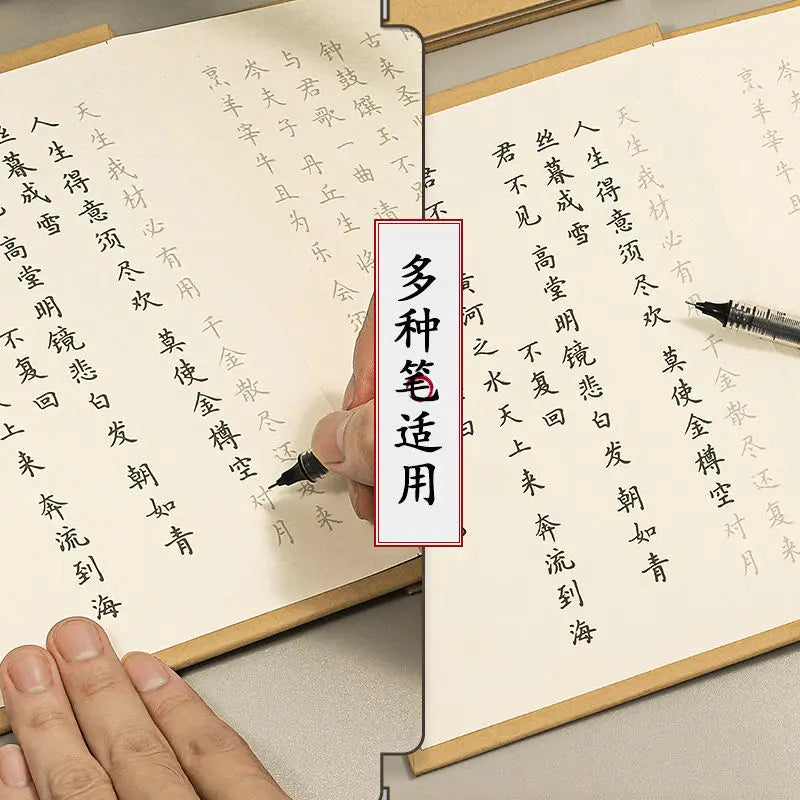 上来 奔流到海
不复回
见 高堂明镜悲白发 朝如青
丝暮成雪
人生得意须尽欢 莫使金樽空对月
天生我材必有用 千金散尽还复来
烹羊宰牛且为乐 会须
岑夫子 丹丘生 将
与君歌一曲 请
钟鼓馔玉不足
古来圣
多种笔适用
君不
黄河之水天上来 奔流到海
不复回
君不见 高堂明镜悲白发 朝如青
丝暮成雪
人生得意须尽欢 莫使金樽空对月
天生我材必有用 千金散尽还复来
烹羊宰牛且
岑夫子